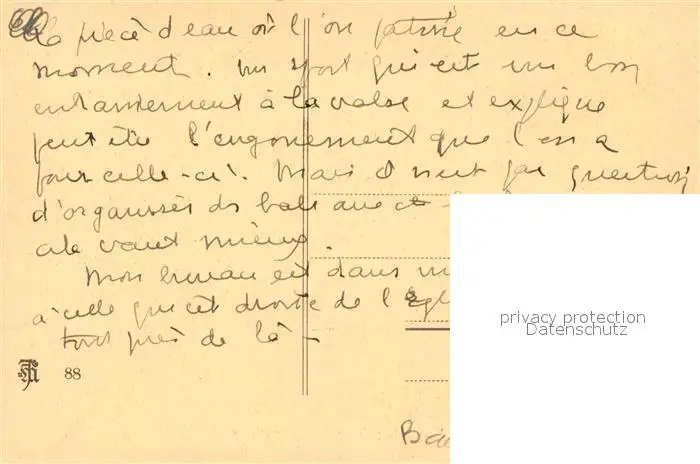 La pièce d'eau où l'on patine en ce
moment. un sport qui est un bon
entrainement à la valse et explique
peut être l'engouement que l'on a
pour celle-ci. Mais il n'est pas question
d'organiser des bals avec ce
cela vaut mieux.
Mon bureau est dans
à celle qui est droite de l'
tout près de là -
88
privacy protection
Datenschutz